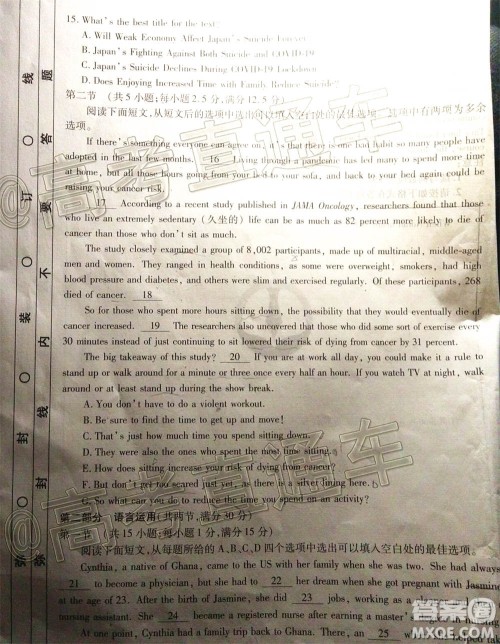 15. What's the best title for the text?
A. Will Weak Economy Affect Japan's Suicide Forever
B. Japan's Fighting Against Both Suicide and COVID-19
C. Japan's Suicide Declines During COVID-19 Lockdown
D. Does Enjoying Increased Time with Family Reduce Suicide?
第二节 (共5小题;每小题2.5分,满分12.5分)
阅读下面短文,从短文后的选项中选出可以填入空白处的最佳选项。选项中有两项为多余
选项。
If there's something everyone can agree on, it's that there is one bad habit so many people have
adopted in the last few months. 16 Living through a pandemic has led many to spend more time
at home, but all those hours could be doing you more harm than good, as is
raising your cancer risk.
17 According to a recent study published in JAMA Oncology, researchers found that those
who live an extremely sedentary (久坐的) life can be as much as 82 percent more likely to die of
cancer than those who don't sit as much.
The study closely examined a group of 8,002 participants, made up of multiracial, middle-aged
men and women. They ranged in health conditions, as some were overweight, smokers, had high
blood pressure and diabetes, and others were slim and exercised regularly. Of these participants, 268
died of cancer. 18
So for those who spent more hours sitting down, the possibility that they would eventually die of
cancer increased. 19 The researchers also uncovered that those who did some sort of exercise every
30 minutes instead of just continuing to sit lowered their risk of dying from cancer by 31 percent.
The big takeaway of this study? 20 If you are at work all day, you could make it a rule to
stand up or walk around for a minute or three once every half an hour. If you watch TV at night, walk
around or at least stand up during the show break.
A. You don't have to do a violent workout.
B. Be sure to find the time to get up and move!
C. That's just how much time you spend sitting down.
D. They were also the ones who spent the most time sitting.
E. How does sitting increase your risk of dying from cancer?
F. But don't get too scared just yet, as there is a silver lining here.
G. So what can you do to reduce the time you spend on an activity?
第二部分 语言运用(共两节,满分30分)
第一节 (共15小题;每小题1分,满分15分)
阅读下面短文,从每题所给的A、B、C、D四个选项中选出可以填入空白处的最佳选项。
Cynthia, a native of Ghana, came to the US with her family when she was two. She had always
21 to become a physician, but she had to 22 her dream when she got pregnant with Jasmine
at the age of 23. After the birth of Jasmine, she did 23 jobs, working as a classroom
nursing assistant. She 24 became a registered nurse after earning a master's
At one point, Cynthia had a family trip to Ghana. There, an 25 helped
线
题
答
订
要
装
不
内
封
线
弥
封
弥
高考直通车
高考直通车
答案圈
MXQE.COM